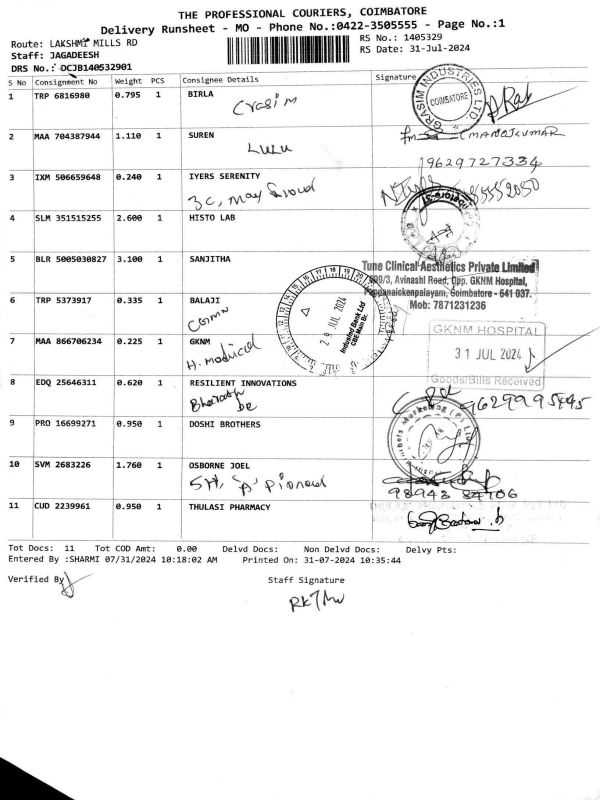 THE PROFESSIONAL COURIERS, COIMBATORE
Delivery Runsheet - MO - Phone No.:0422-3505555 - Page No.:1
Route: LAKSHMI MILLS RD
RS No.: 1405329
Staff: JAGADEESH
RS Date: 31-Jul-2024
DRS No.: DCJB140532901
S No Consignment No Weight PCS Consignee Details Signature
1 TRP 6816980 0.795 1 BIRLA
Crasim
GRASIM INDUSTRIES LTD. COIMBATORE
2 MAA 704387944 1.110 1 SUREN
LULU
MANOJKUMAR
9629727334
3 IXM 506659648 0.240 1 IYERS SERENITY
3C, May
4 SLM 351515255 2.600 1 HISTO LAB
5 BLR 5005030827 3.100 1 SANJITHA
Tune Clinical Aesthetics Private Limited
Avinashi Road, Opp. GKNM Hospital,
Pappanaickenpalayam, Coimbatore - 641 037.
Mob: 7871231236
6 TRP 5373917 0.335 1 BALAJI
29 JUL 2024
IndusInd Bank Ltd
CBE Main Br.
7 MAA 866706234 0.225 1 GKNM
H. medical
GKNM HOSPITAL
31 JUL 2024
Goods/Bills Received
8 EDQ 25646311 0.620 1 RESILIENT INNOVATIONS
Bharath
9 PRO 16699271 0.950 1 DOSHI BROTHERS
10 SVM 2683226 1.760 1 OSBORNE JOEL
5H, 'A'
98943 84706
11 CUD 2239961 0.950 1 THULASI PHARMACY
Tot Docs: 11 Tot COD Amt: 0.00 Delvd Docs: Non Delvd Docs: Delvy Pts:
Entered By :SHARMI 07/31/2024 10:18:02 AM Printed On: 31-07-2024 10:35:44
Verified By
Staff Signature